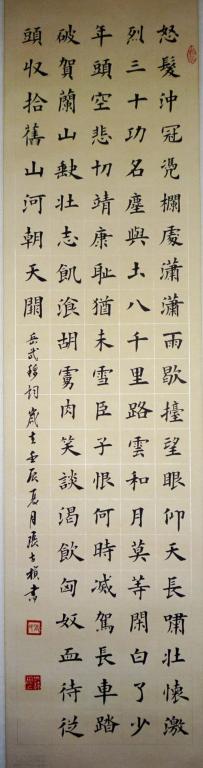 怒髮沖冠凴欄處瀟瀟雨歇擡望眼仰天長嘯壯懷激
烈三十功名塵與土八千里路雲和月莫等閑白了少
年頭空悲切靖康恥猶未雪臣子恨何時滅駕長車踏
破賀蘭山缺壯志飢飡胡虜肉笑談渴飲匈奴血待從
頭収拾舊山河朝天闕
岳武穆詞歲在壬辰夏月張書